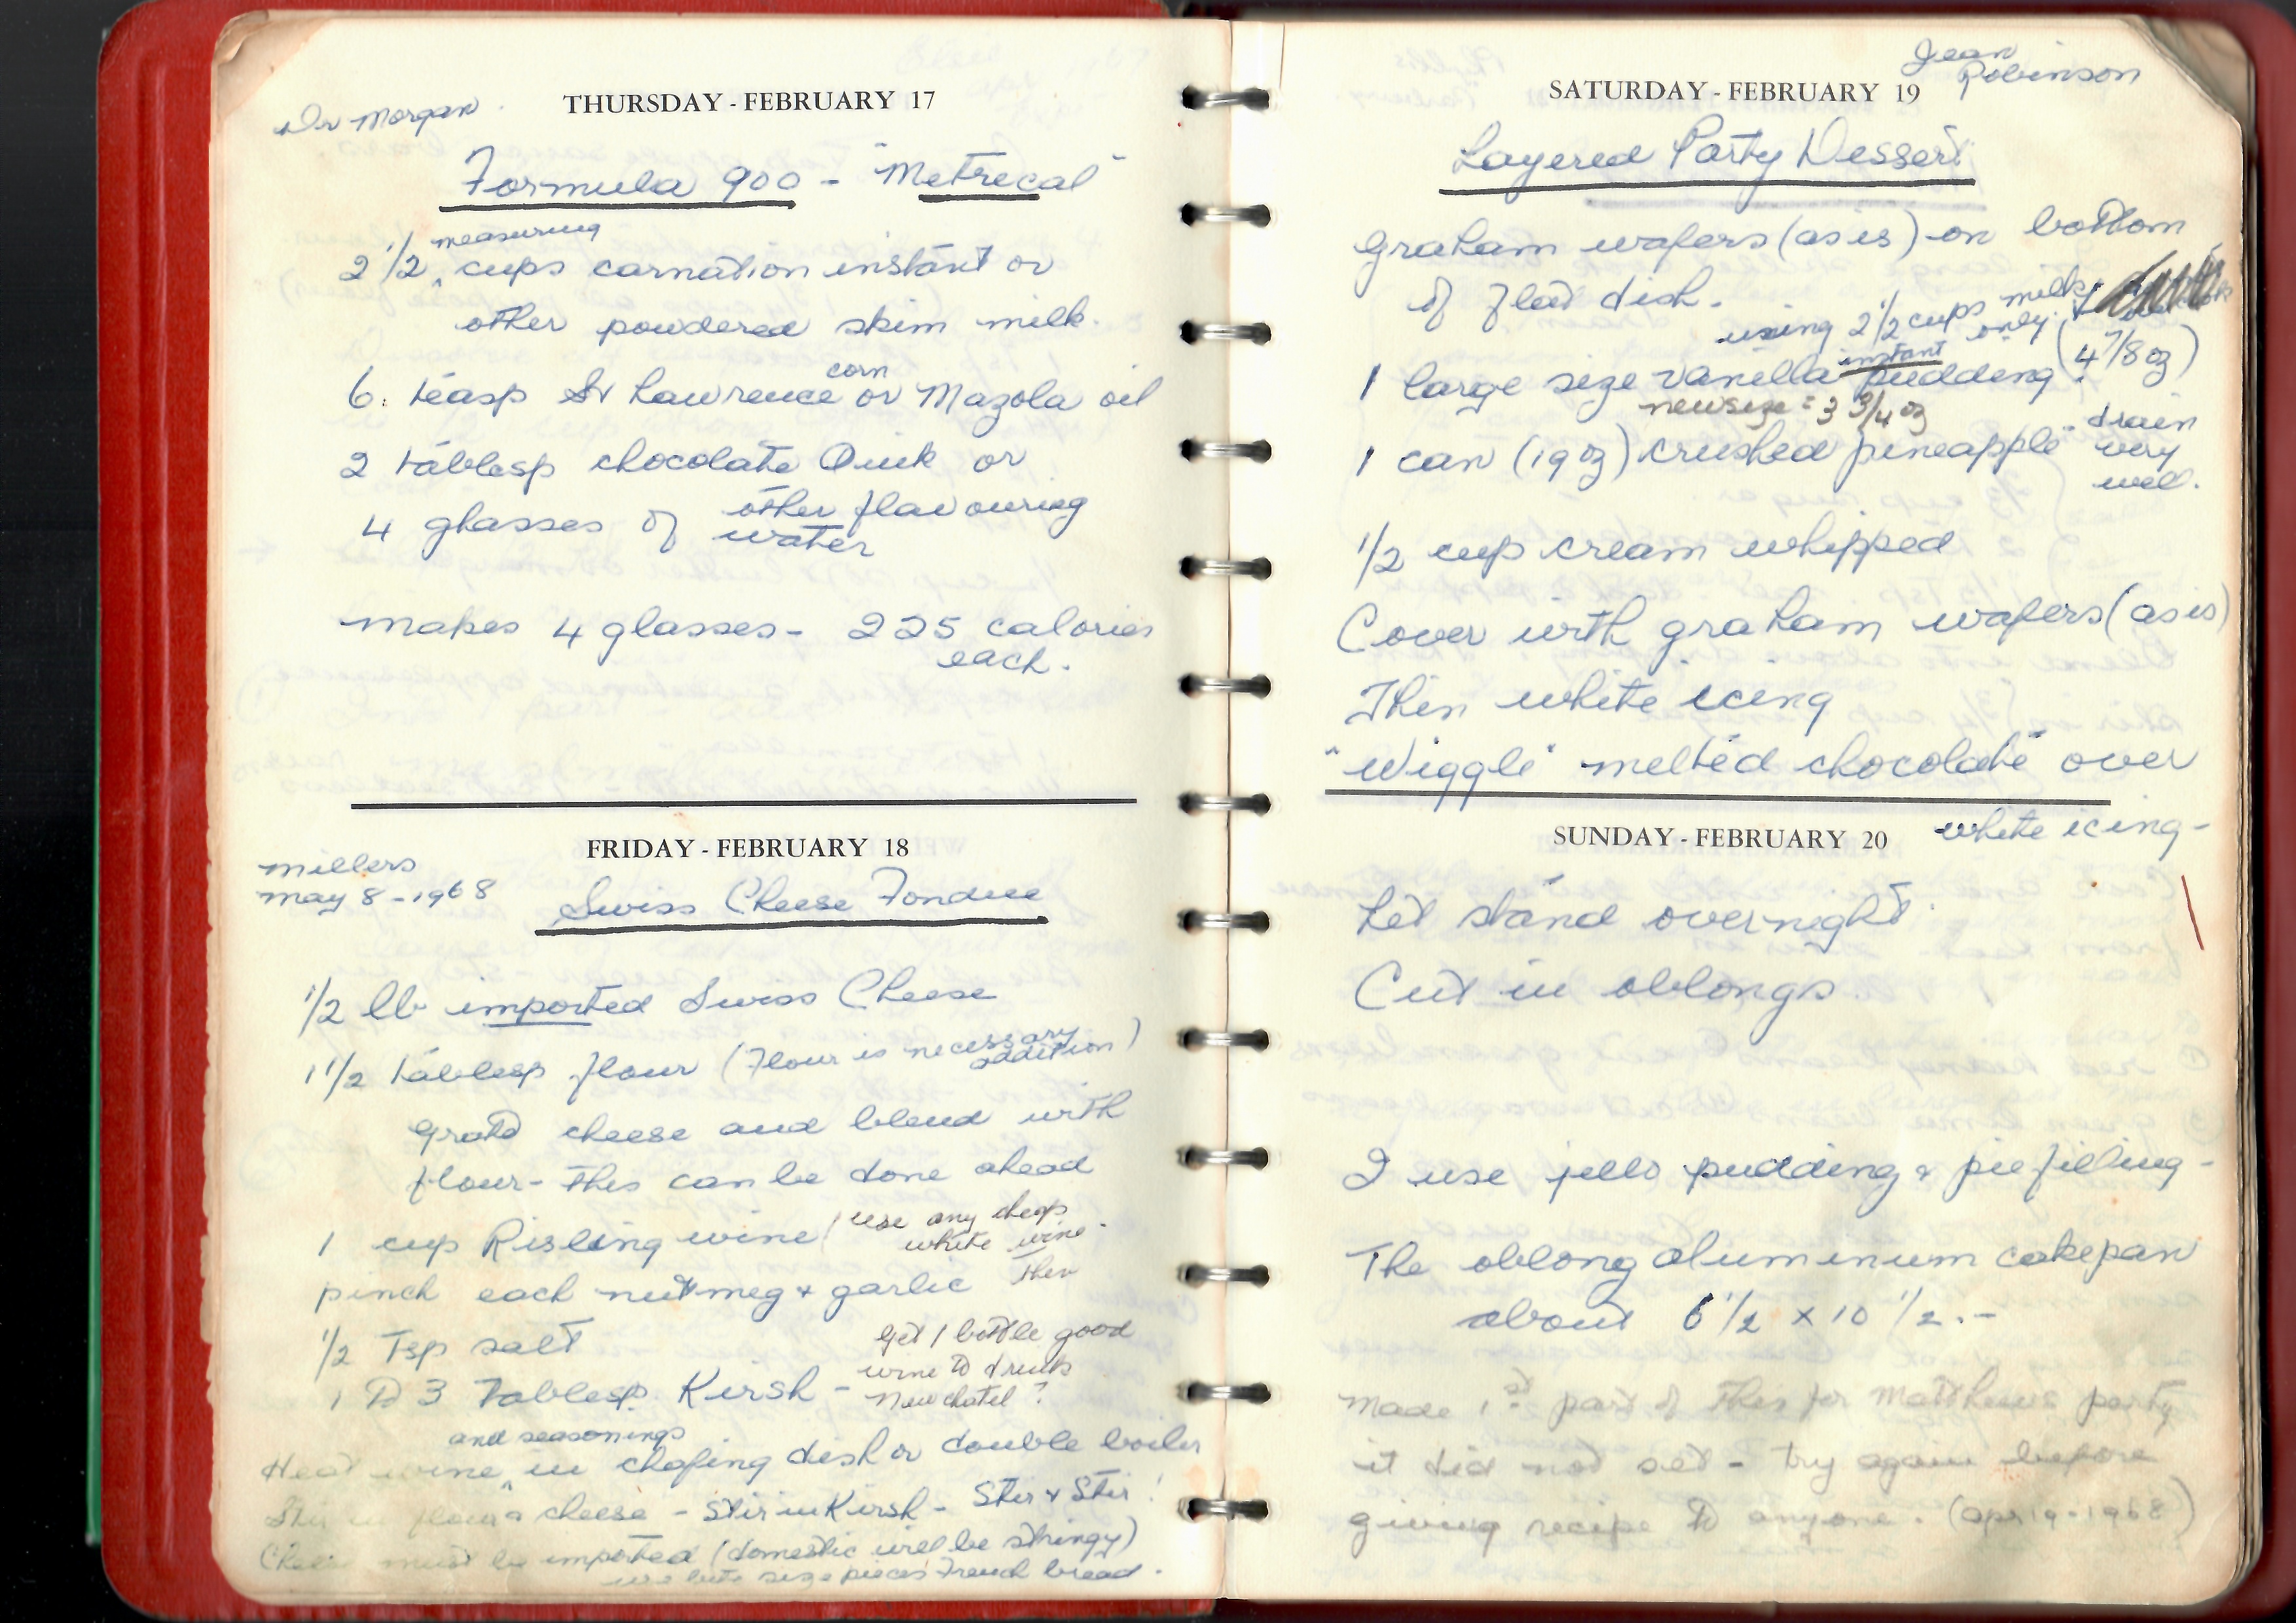 Dr Morgan
THURSDAY - FEBRUARY 17
Formula 900 - "Metrecal"
measuring
2 1/2 ^ cups carnation instant or
other powdered skim milk.
corn
6. teasp St Lawrence or Mazola oil
2 tablesp chocolate Quik or
other flavouring
4 glasses of water
makes 4 glasses - 225 calories
each.
FRIDAY - FEBRUARY 18
Millers
May 8 - 1968
Swiss Cheese Fondue
1/2 lb imported Swiss Cheese
1 1/2 tablesp flour (Flour is necessary
addition)
grate cheese and blend with
flour - this can be done ahead
1 cup Risling wine (use any cheap
white wine.
pinch each nutmeg & garlic Then
1/2 Tsp salt get 1 bottle good
wine to drink
1 to 3 Tablesp. Kirsh - Newchatel?
and seasonings
Heat wine ^ in chafing dish or double boiler
Stir in flour & cheese - Stir in Kirsh - Stir & Stir!
Cheese must be imported (domestic will be stringy)
use bite size pieces French bread.
Jean
Robinson
SATURDAY - FEBRUARY 19
Layered Party Dessert
Graham wafers (as is) on bottom
of flat dish.
using 2 1/2 cups milk
only.
instant (4 7/8 oz)
1 large size vanilla pudding.
new size = 3 3/4 oz
1 can (19 oz) crushed pineapple drain
very
well.
1/2 cup cream whipped
Cover with graham wafers (as is)
Then white icing
"Wiggle" melted chocolate over
SUNDAY - FEBRUARY 20 white icing -
Let stand overnight.
Cut in oblongs.
I use jello pudding & pie filling -
The oblong aluminum cakepan
about 6 1/2 x 10 1/2. -
Made 1st part of this for Matthews party
it did not set - try again before
giving recipe to anyone. (Apr 19 - 1968)